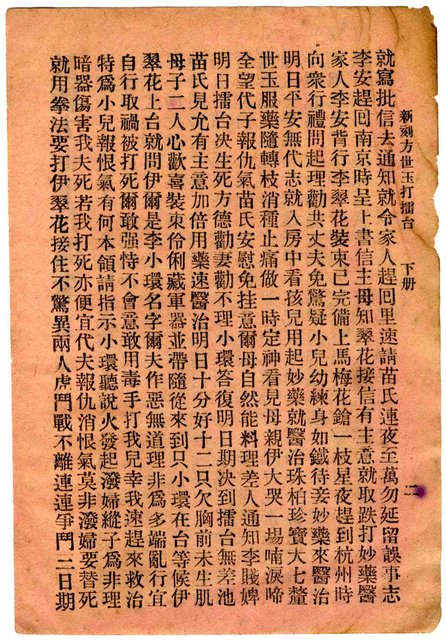 新刻方世玉打擂台　下册　二
就寫批信去通知就令家人趕回里速請苗氏連夜至萬勿延留誤事志
李安趕回南京時呈上書信主母知翠花接信有主意就取跌打妙藥醫
家人李安背行李翠花裝束已完備上馬梅花鎗一枝星夜趕到杭州時
向衆行禮問起理勸共丈夫免驚疑小兒幼練身如鐵待妾妙藥來醫治
明日平安無代志就入房中看孩兒用起妙藥就醫治珠柏珍寶大七釐
世玉服藥隨轉枝消種止痛做一時定神看見母親伊大哭一場喃淚啼
全望代子報仇氣苗氏安慰免挂意爾母自然能料理差人通知李賤婢
明日擂台决生死方德勸妻勸不理小環答復明日期决到擂台無差池
苗氏兒允有主意加倍用藥速醫治明日十分好十二只欠胸前未生肌
母子二人心歡喜裝束伶俐藏軍器並帶隨從來到只小環在台等候伊
翠花上台就問伊爾是李小環名字爾夫作惡無道理非爲多端亂行宜
自行取禍被打死爾敢强恃不會意敢用毒手打我兒幸我速趕來救治
特爲小兒報恨氣有何本領請指示小環聽説火發起潑婦縱子爲非理
暗器傷害我夫死若我打死亦便宜代夫報仇消恨氣莫非潑婦要替死
就用拳法要打伊翠花接住不驚異兩人虎鬥戰不離連連爭鬥二日期